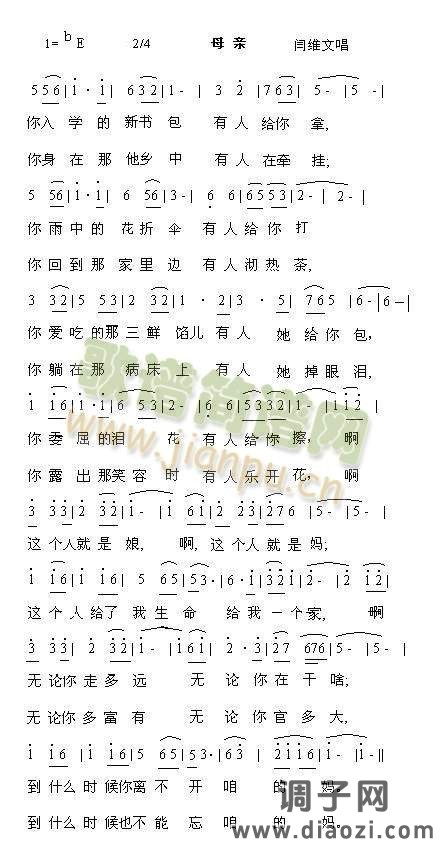 1= ᵇE 2/4 母亲 闫维文唱
5 56|1·1|6 32|1 - |3 2|7 63|5 - |5 - |
你入学的新书包 有人给你拿;
你身在那他乡中 有人在牵挂;
5 56|1·1|6 56|3 - |6 6|65 53|2 - |2 - |
你雨中的花折伞 有人给你打
你回到那家里边 有人沏热茶,
3 32|5 53|2 32|1 · 2|3 · 5|765|6 - |6 - |
你爱吃的那三鲜馅儿有人她给你包,
你躺在那病床上有人她掉眼泪,
1 16|1·1|6 53|2 - |6 6|5332|1 - |112|
你委屈的泪花有人给你擦,啊
你露出那笑容时有人乐开花,啊
3 33|2 32|1 - |1 61|2 · 3|276|5 - |5 - |
这个人就是娘,啊,这个人就是妈;
1 16|1·6|1 5|65|53·|6·1|321|2 - |2 12|
这个人给了我生命给我一个家,啊
3 33|2 32|1 - |161|2 · 3|27 676|5 - |5 - |
无论你走多远无论你在干啥;
无论你多富有无论你官多大,
1 16|1|5 65|53·|6 2|2116|1 - |1 - ||
到什么时候你离不开咱的妈。
到什么时候也不能忘咱的妈。
歌谱简谱网
www.jianpu.cn
调子网
www.diaozi.com